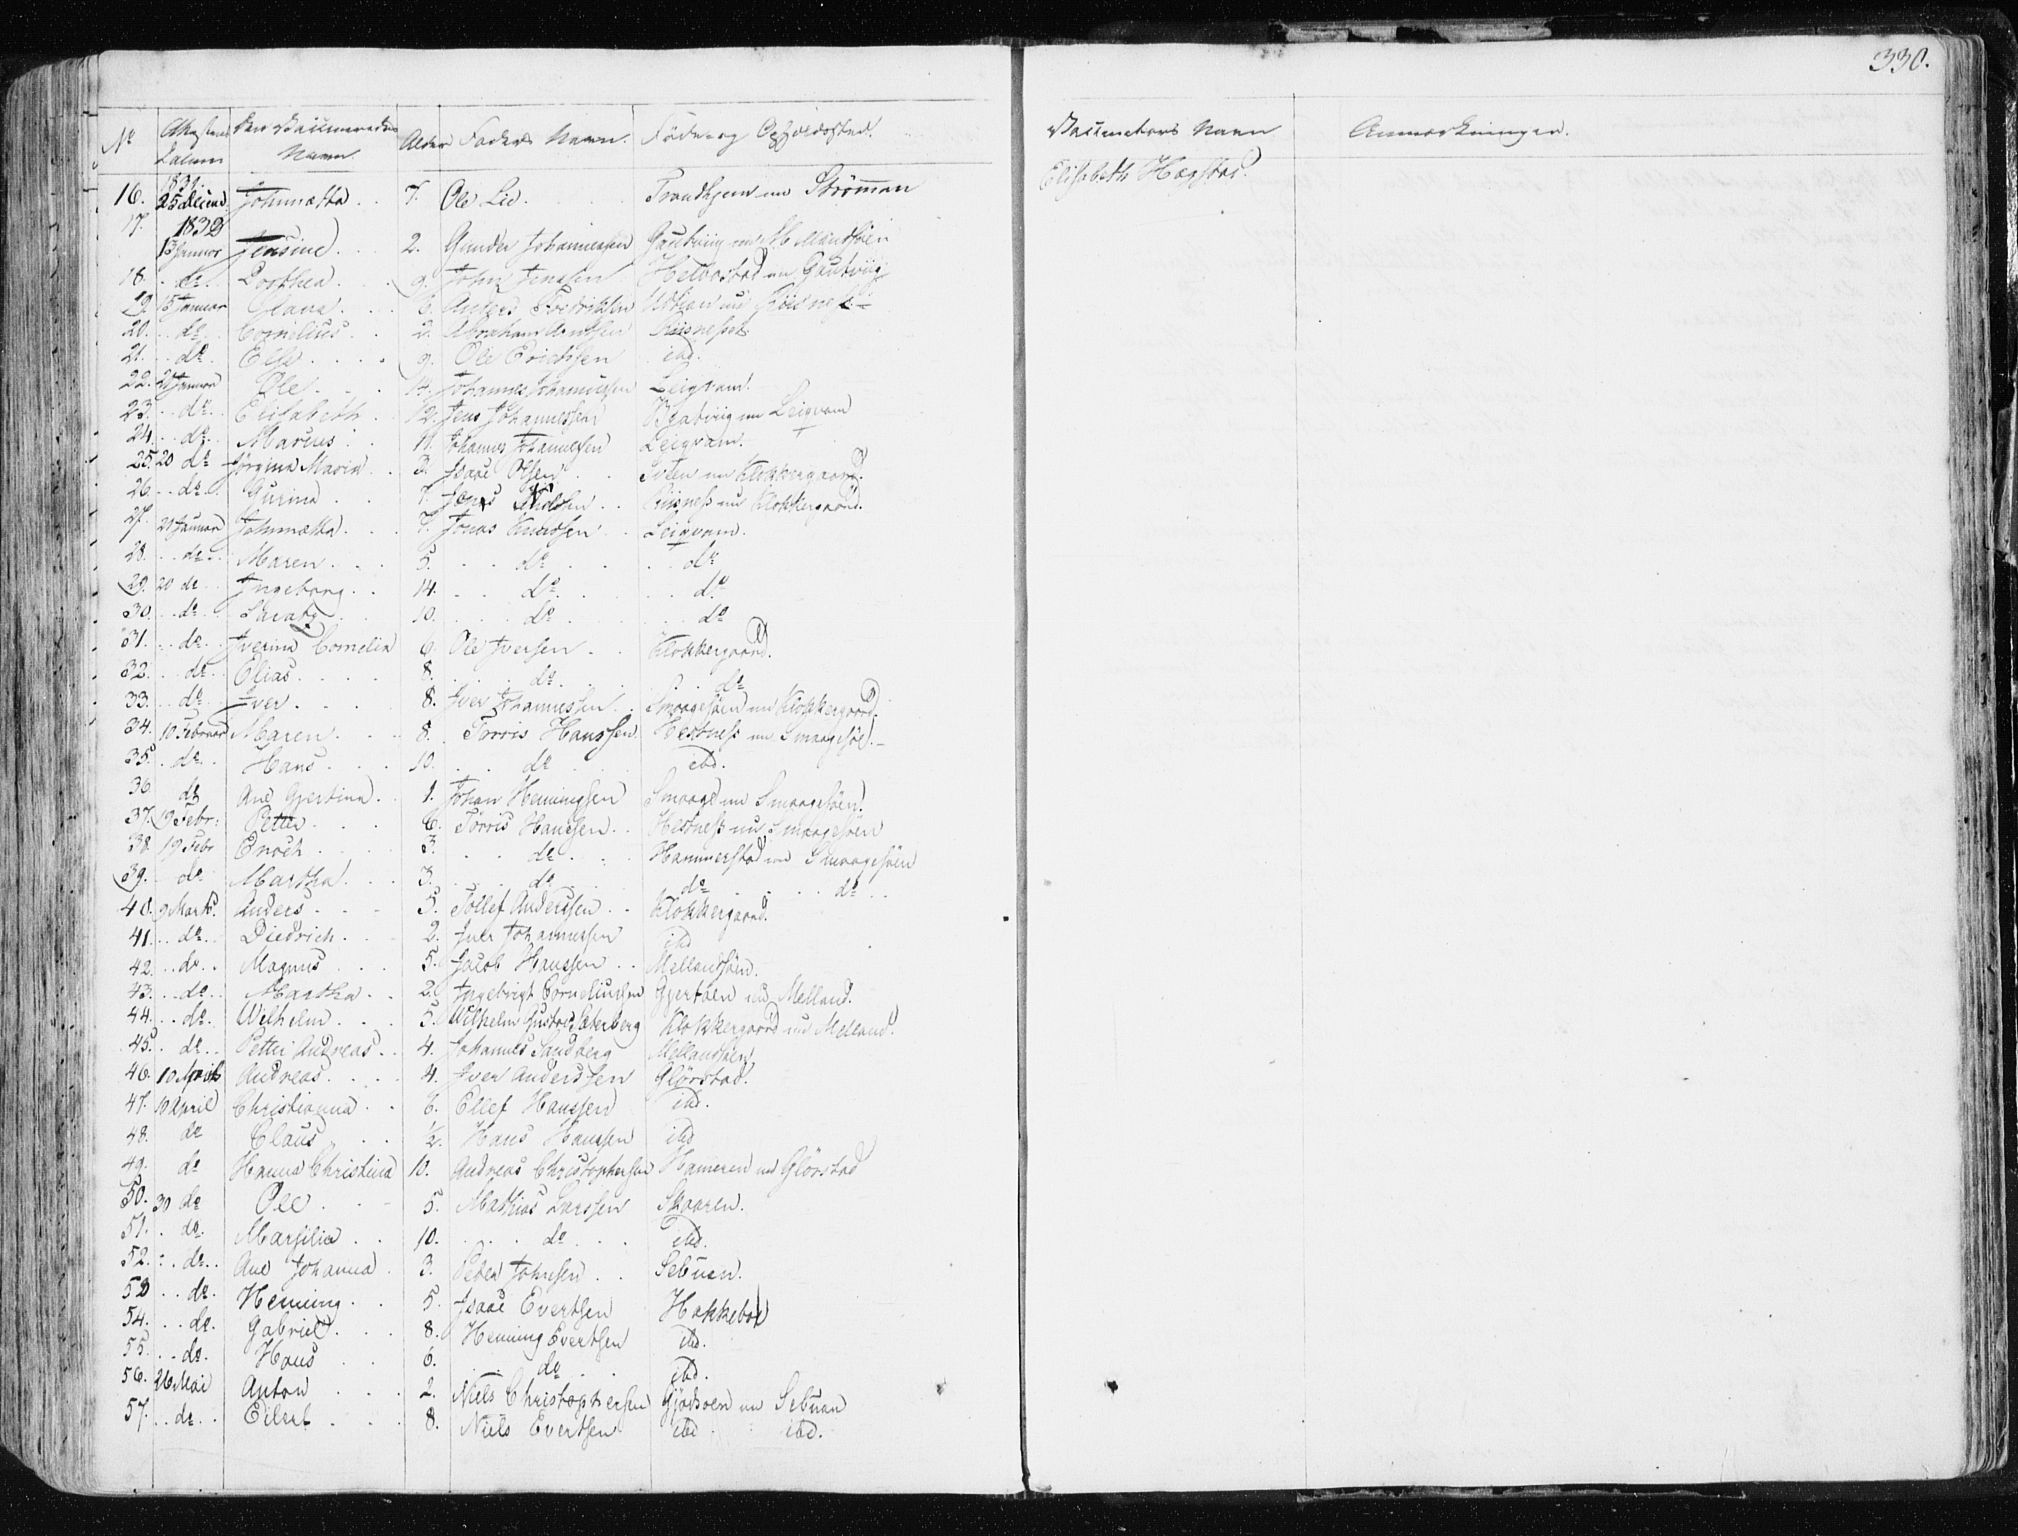 330.
No Attestens Datum Den Vaccineredes Navn Alder Faders Navn. Føde og Opholdssted. Vaccinateurs Navn Anmærkninger.
16. 1831. 25 Johnnetta 7. Ole Lie Trondhjem nu Strømmen Elisabeth Hægstad.
17. 1832 13 Januar Jensine 2. Gunder Johannessen
18. do Dorthea 9. John Jenssen nu Gautviig
19. 15 Januar Olava 6. Anders Fredriksen
20. do Cornelius 2. Abraham Arntsen
21. do Else 9. Ole Erichssen ibd.
22. 21 Januar Ole 14. Johannes Johannessen Leiqvam.
23. do Elisabeth 12. Jens Johannessen nu Leiqvam
24. do Marius 11. Johannes Johannessen Leiqvam.
25. 20 do Jørgina Maria 3. Isaac Olsen nu Klokkergaard.
26. do Gurina 7. Jens nu Klokkergaard.
27. 21 Januar Johnnetta 7. Jonas Knudssen Leiqvam.
28. do Maren 5. do do
29. 20 do Ingeborg 14. do do
30. do 10. do do
31. do Iverina Cornelia 6. Ole Iversen Klokkergaard.
32. do Elias 8. do do
33. do Iver 8. Iver Johannessen Smaagesøen nu Klokkergaard.
34. 10 Februar Maren 8. Tørris Hanssen Hestness nu Smaagesøe.
35. do Hans 10. do ibd.
36 do Ane Gjertina 1. Johan Henningsen Smaage nu Smaagesøen.
37. 19 Febr: Petter 6. Tørris Hanssen Hestness nu Smaagesøen
38. 19 Febr Enoch 3. do Hammerstad nu Smaagesøen
39. do Martha 3. do do do
40. 9 Marts. Anders 5. Tollef Anderssen Klokkergaard.
41. do Diedrich 2. Iver Johannessen ibd
42. do Magnus 5. Jacob Hanssen Mellandsøen.
43. do Martha 2. Ingebrigt Corneliussen Gjertøen nu Melland.
44. do Wilhelm 5. Wilhelm Gustav Sæterberg Klokkergaard nu Melland.
45. do Petter Andreas 4. Johannes Sandberg Mellandsøen
46. 10 April Andreas 4. Iver Anderssen Glørstad.
47. 10 April Christianna 6. Ellef Hanssen ibd.
48. do Claus ½. Hans Hanssen ibd
49. do Hanna Christina 10. Andreas Christophersen Hameren nu Glørstad
50. 30 do Ole 5. Mathias Larssen Skaaren.
51. do Marsilia 10. do ibd.
52. do Ane Johanna 3. Peder Johnsen Sebuen.
53 do Henning 5. Isaac Evertsen Hakkeboe
54. do Gabriel 8. Henning Evertsen ibd.
55. do Hans 6. do ibd.
56. 26 Mai Anton 2. Niels Christophersen Gjødsøen nu Sebuen
57. do Eilert 8. Niels Evertsen ibd ibd.